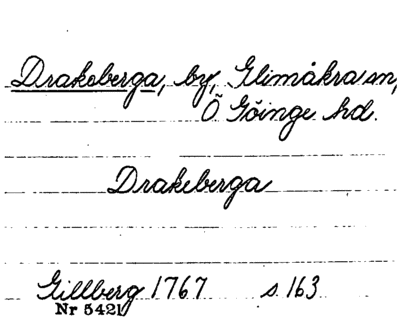 Drakeberga, by, Glimåkra sn,
Ö Göinge hd.
Drakeberga
Gillberg 1767 s 163
Nr 5421